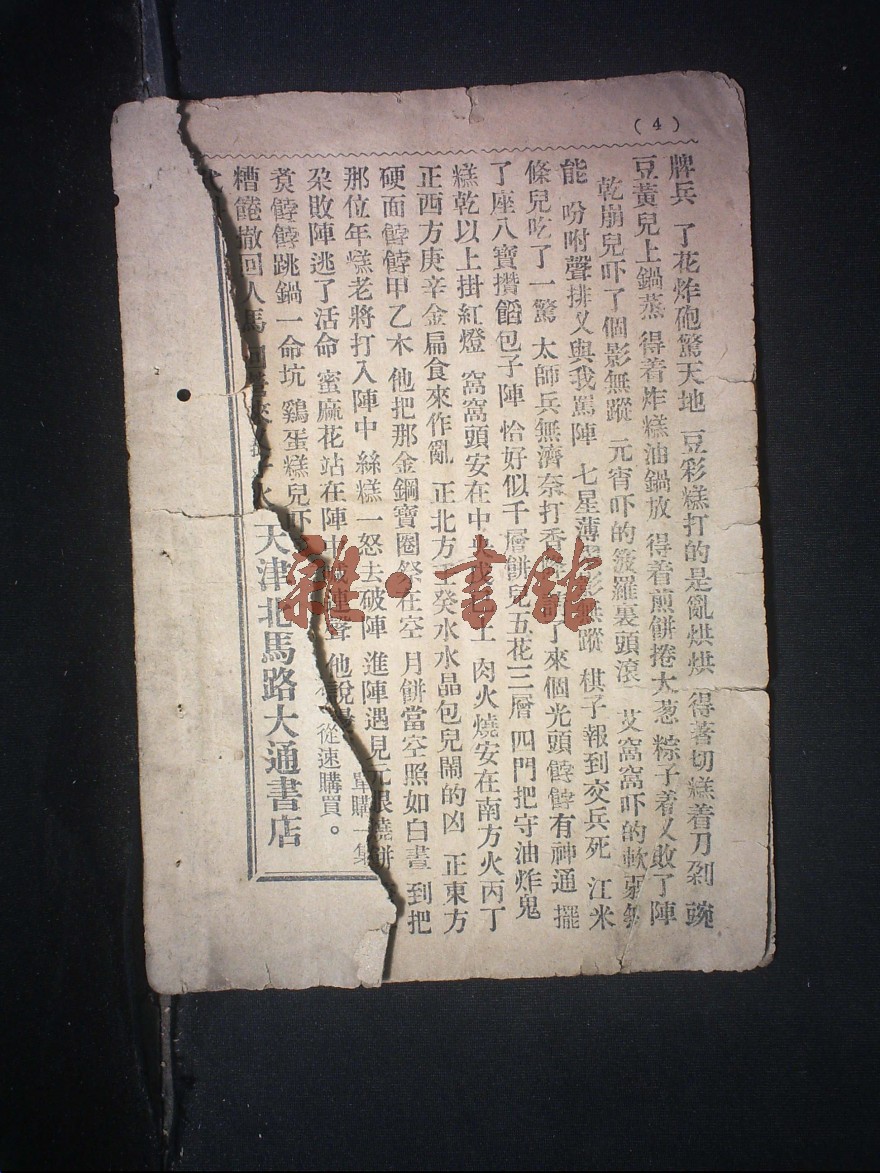 (4)
牌兵 了花炸砲驚天地 豆彩糕打的是亂烘烘 得著切糕着刀剁 豌
豆黃兒上鍋蒸 得着炸糕油鍋放 得着煎餅捲大葱 粽子着乂敗了陣
乾崩兒吓了個影無蹤 元宵吓的菠羅裏頭滾 艾窩窩吓的軟弱無
能 吩咐聲排乂與我罵陣 七星薄 影無蹤 棋子報到交兵死 江米
條兒吃了一驚 太師兵無濟奈打香 了來個光頭餑餑有神通 擺
了座八寶攢餡包子陣 恰好似千層餅兒五花三層 四門把守油炸鬼
糕乾以上掛紅燈 窩窩頭安在中央戊 土 肉火燒安在南方火丙丁
正西方庚辛金扁食來作亂 正北方壬癸水水晶包兒鬧的凶 正東方
硬面餑餑甲乙木 他把那金鋼寶圈祭在空 月餅當空照如白晝 到把
那位年糕老將打入陣中 絲糕一怒去破陣 進陣遇見 燒餅
朶敗陣逃了活命 蜜麻花站在陣中 連聲 他說
餑餑跳鍋一命坑 鷄蛋糕兒吓
糟 撤回人馬
單購一集
從速購買。
天津北馬路大通書店
雜·書館